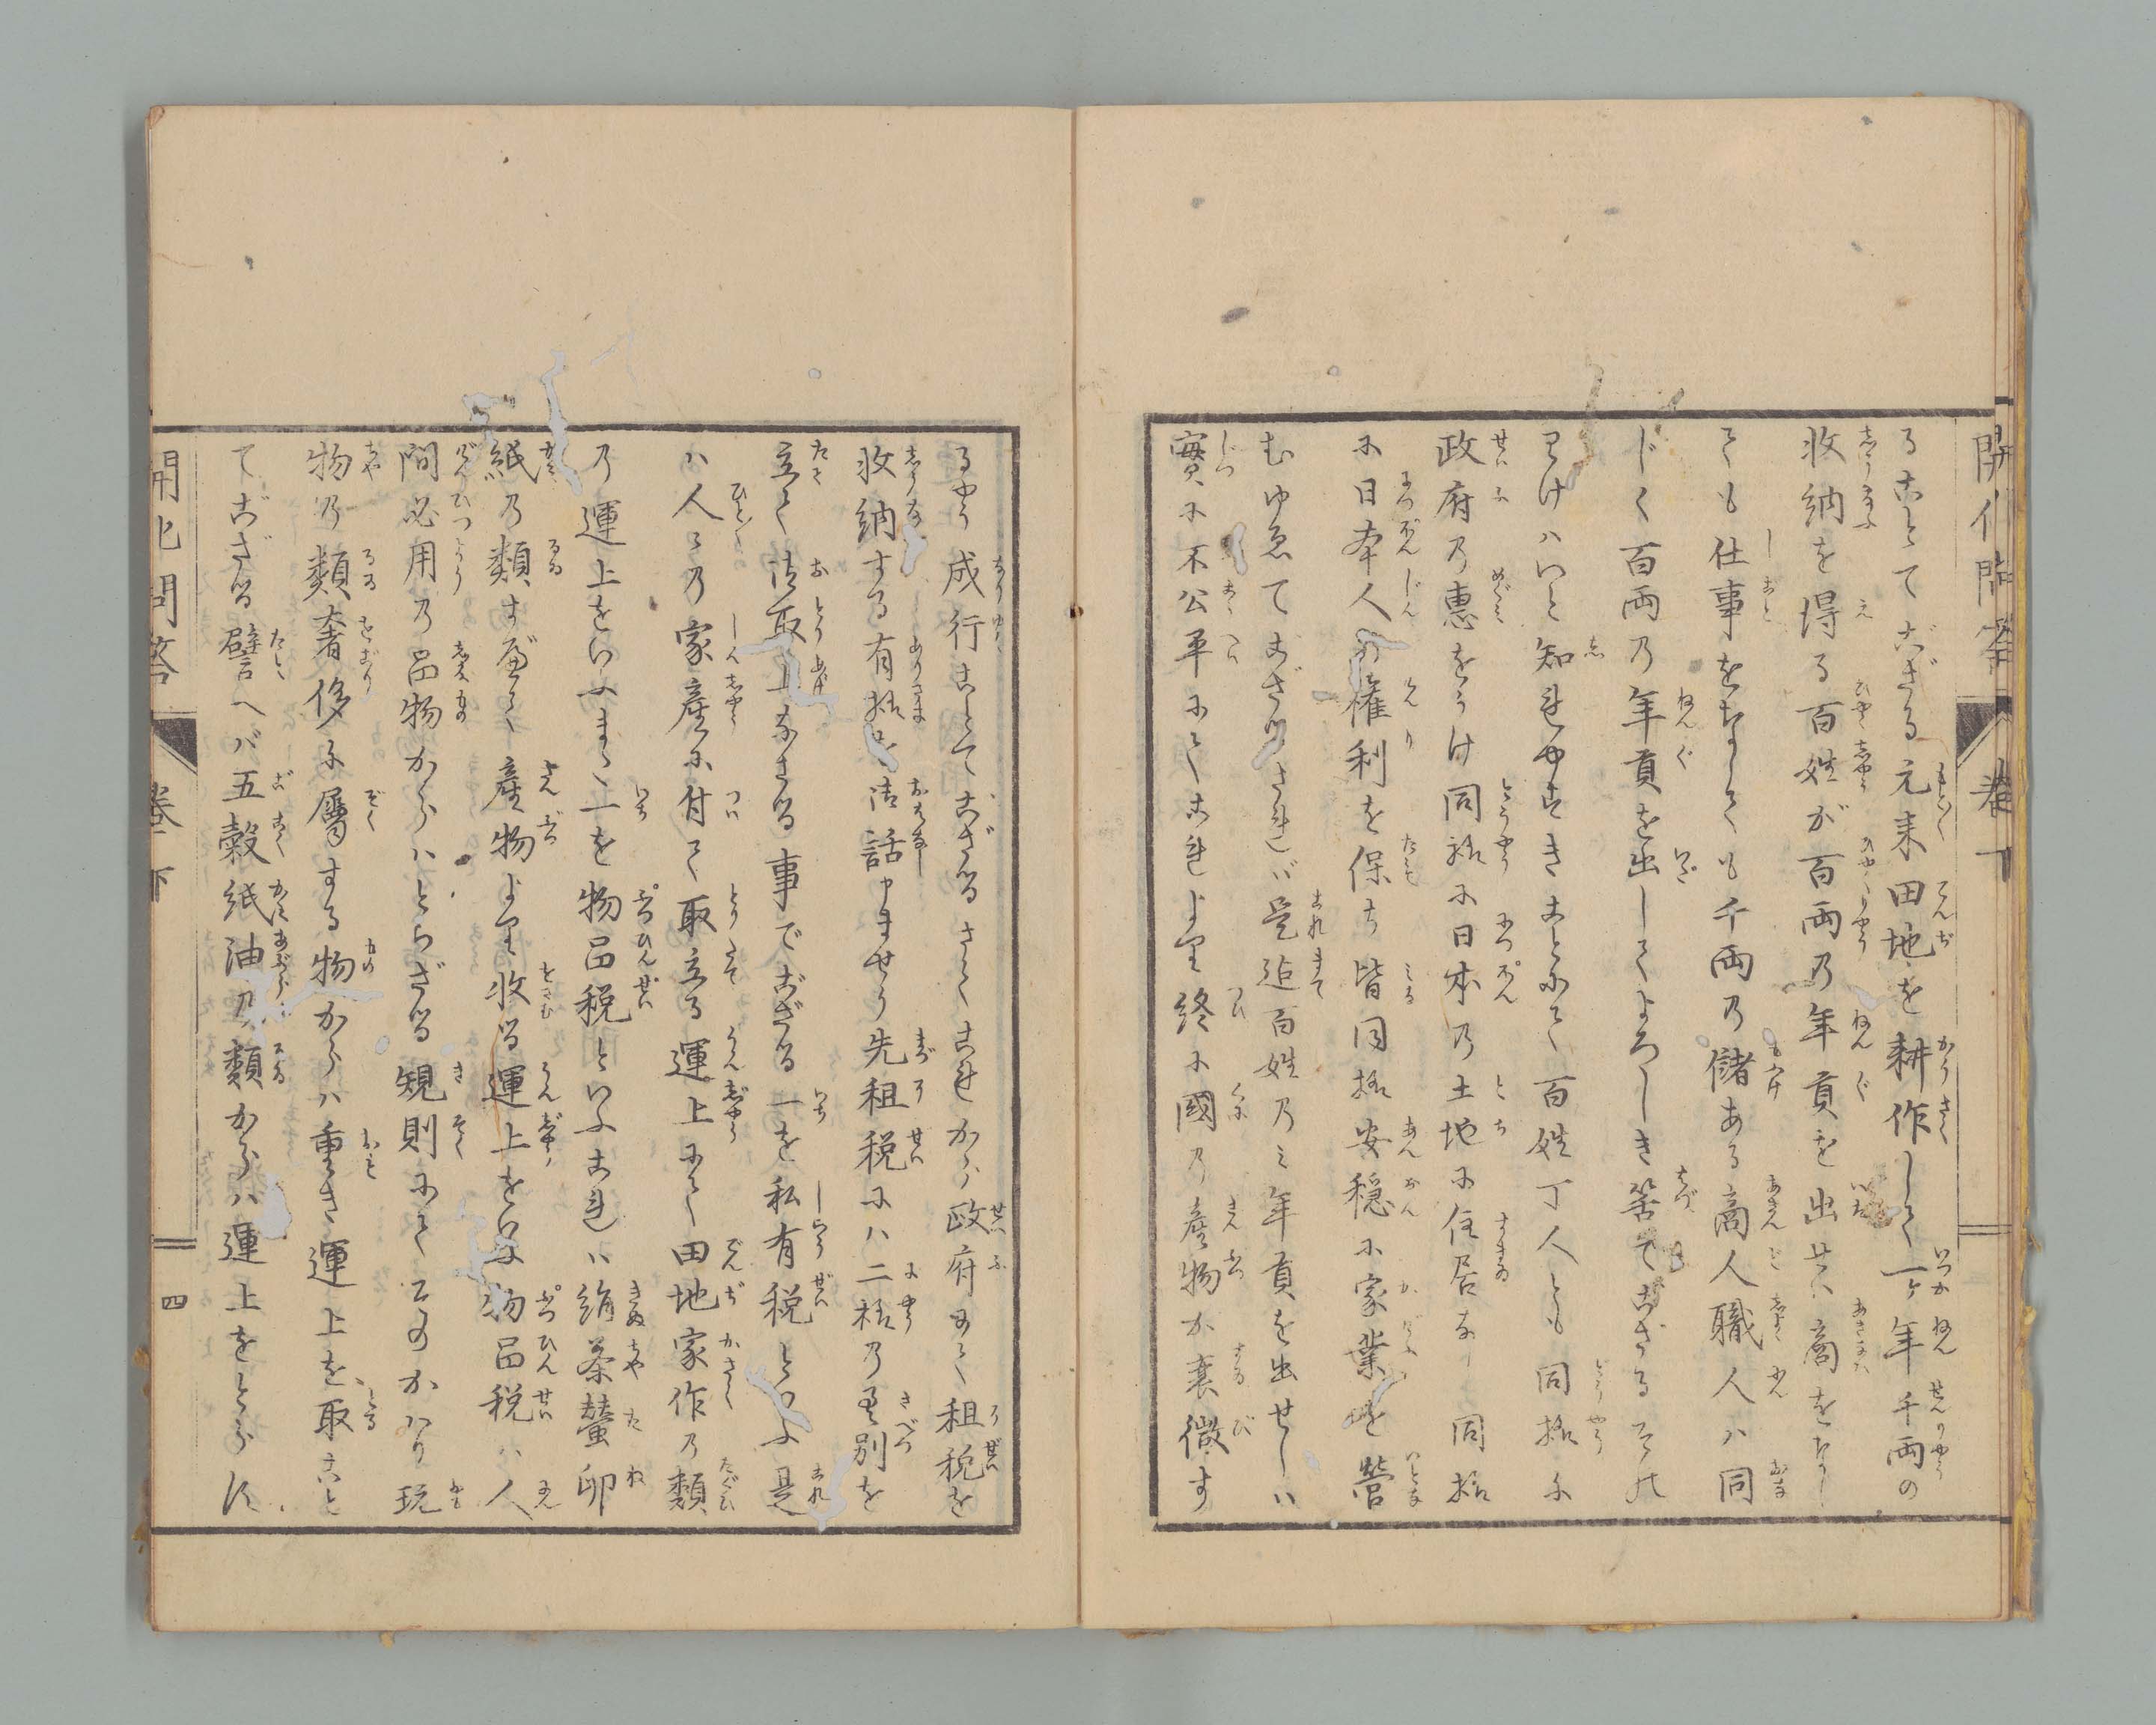 開化問答 巻下
ることでござる元来田地を耕作して一ケ年千両の
收納を得る百姓が百両の年貢を出せバ商をなし
ても仕事をなしても千両の儲ある商人職人ハ同
じく百両の年貢を出してよろしき筈でござるその
わけハいと知れやすきことにて百姓丁人とも同様に
政府の恵をうけ同様に日本の土地に住居なし同様
に日本人の権利を保ち皆同様安穏に家業を営
むゆゑでござるされバ是迄百姓のミ年貢を出せしハ
實に不公平にてこれより終に國の産物が衰微す
るやう成行ことでござるさてこれから政府にて租税を
收納する有様を御話申ませう先租税にハ二様の差別を
立て御取上なさる事でござる一を私有税といふ是
ハ人々の家産に付て取立る運上にて田地家作の類
の運上をいふまた一を物品税といふこれハ絹茶蚕卵
紙の類すべて産物より收る運上をいふ物品税ハ人
間必用の品物からハとらざる規則にてそのかハり玩
物の類奢侈に属する物からハ重き運上を取こと
でござる譬へバ五穀紙油の類からハ運上をとらぬ
開化問答 巻下 四